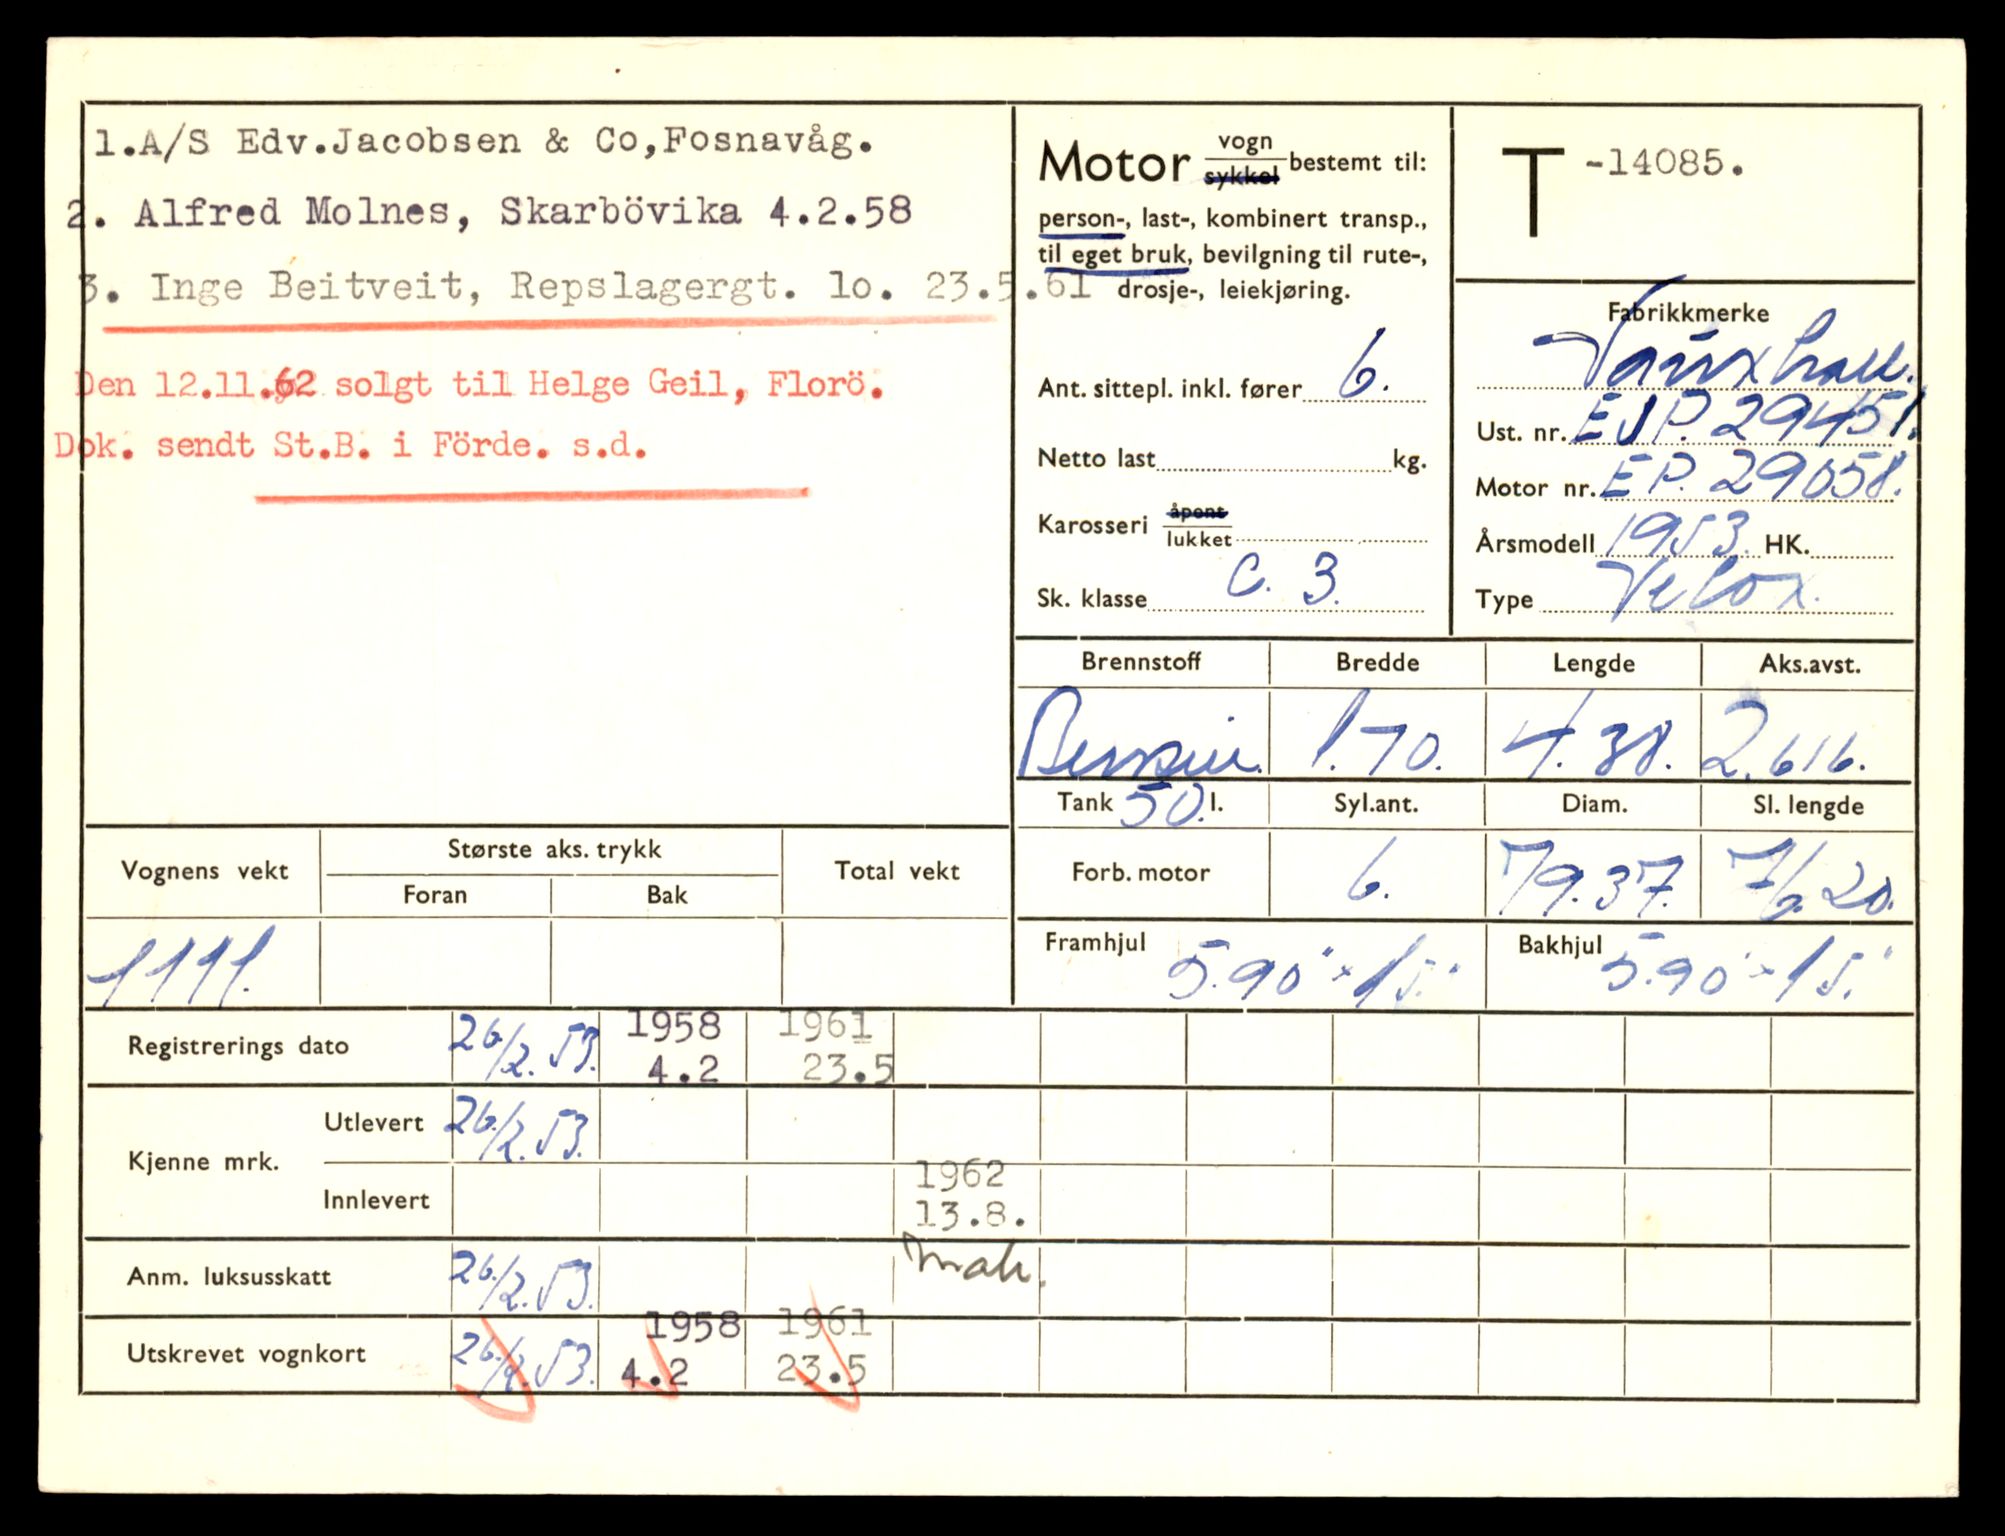 1.A/S Edv.Jacobsen & Co,Fosnavåg.
2. Alfred Molnes, Skarbövika 4.2.58
3. Inge Beitveit, Repslagergt. lo. 23.5.61
Den 12.11.62 solgt til Helge Geil, Florö.
Dok. sendt St.B. i Förde. s.d.
Motor vogn sykkel bestemt til:
person-, last-, kombinert transp.,
til eget bruk, bevilgning til rute-,
drosje-, leiekjøring.
Ant. sittepl. inkl. fører 6.
Netto last kg.
Karosseri åpent lukket
Sk. klasse C. 3.
T -14085.
Fabrikkmerke
Vauxhall.
Ust. nr. EIP. 29451.
Motor nr. EP. 29058.
Årsmodell 1953. HK.
Type Velox.
Brennstoff Bredde Lengde Aks.avst.
Bensin. 1.70. 4.38. 2.616.
Tank 50. l. Syl.ant. Diam. Sl. lengde
Forb. motor 6. 79.37. 76.20.
Framhjul 5.90" x 15." Bakhjul 5.90" x 15."
Vognens vekt Største aks. trykk Total vekt
Foran Bak
1111.
Registrerings dato 26/2.53. 1958 4.2 1961 23.5
Kjenne mrk. Utlevert 26/2.53.
Innlevert 1962 13.8.
Anm. luksusskatt 26/2.53.
Utskrevet vognkort 26/2.53. 1958 4.2 1961 23.5